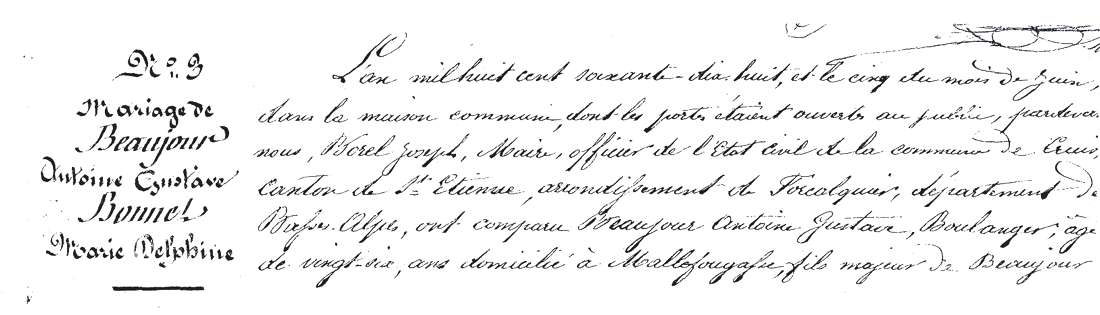 N°. 3
Mariage de
Beaujour
Antoine Gustave
Bonnet
Marie Delphine
L'an mil huit cent soixante-dix-huit, et le cinq du mois de Juin,
dans la maison commune, dont les portes étaient ouvertes au public, pardevant
nous, Borel Joseph, Maire, officier de l'Etat civil de la commune de Cruis,
Canton de St Etienne, arrondissement de Forcalquier, département de
Basses-Alpes, ont comparu Beaujour Antoine Gustave, Boulanger, âgé
de vingt-six, ans domicilié à Mallefougasse, fils majeur de Beaujour